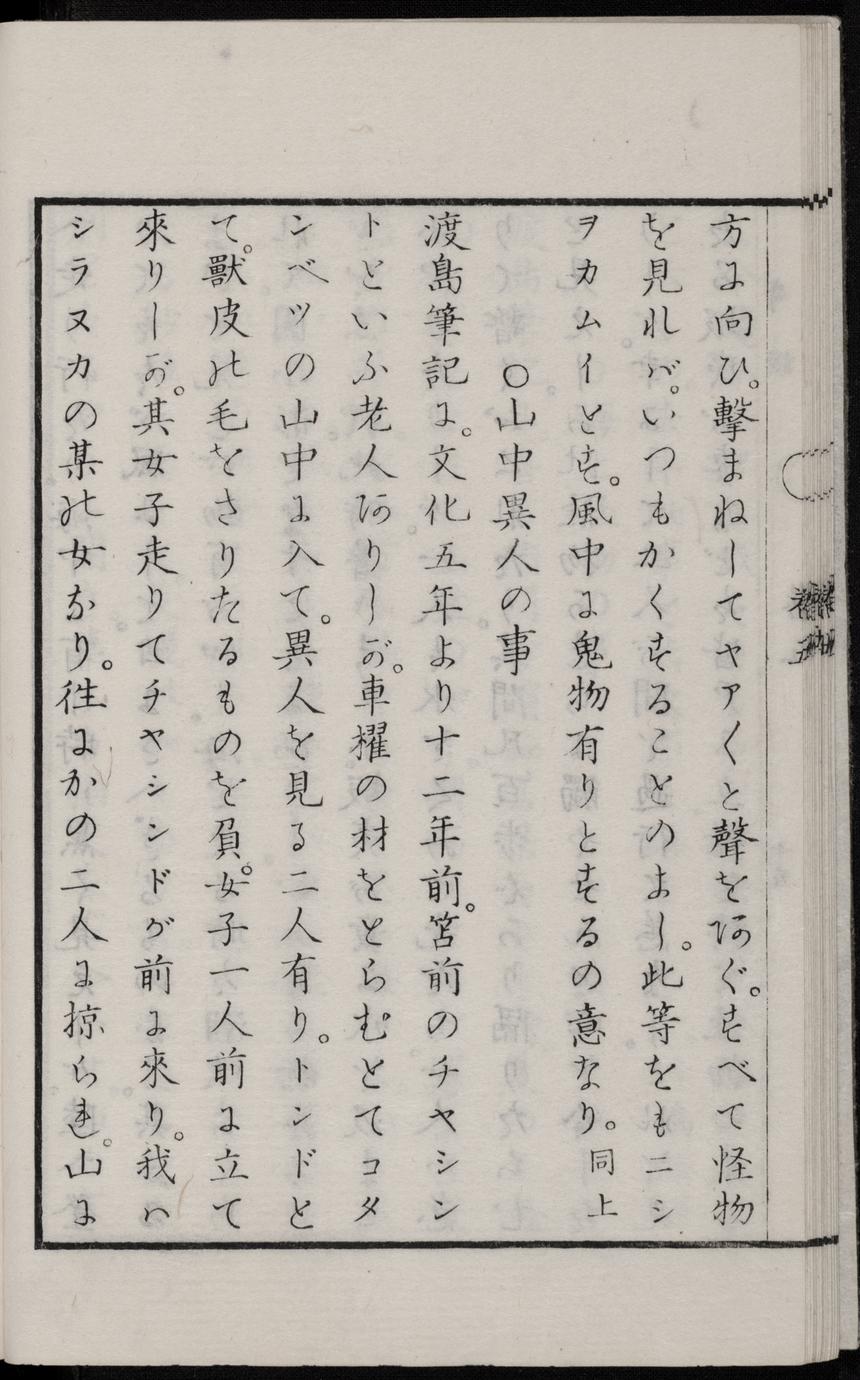 方に向ひ。撃まねしてヤアくと聲をあぐ。すべて怪物
を見れバ。いつもかくすることのよし。此等をもニシ
ヲカムイとす。風中に鬼物有りとするの意なり。同上
○山中異人の事
渡島筆記に。文化五年より十二年前。筥前のチヤシン
トといふ老人ありしが。車櫂の材をとらむとてコタ
ンベツの山中に入て。異人を見る二人有り。トンドと
て。獸皮の毛をさりたるものを負。女子一人前に立て
來りしが。其女子走りてチヤシンドが前に來り。我ハ
シラヌカの某の女なり。徃にかの二人に掠られ。山に